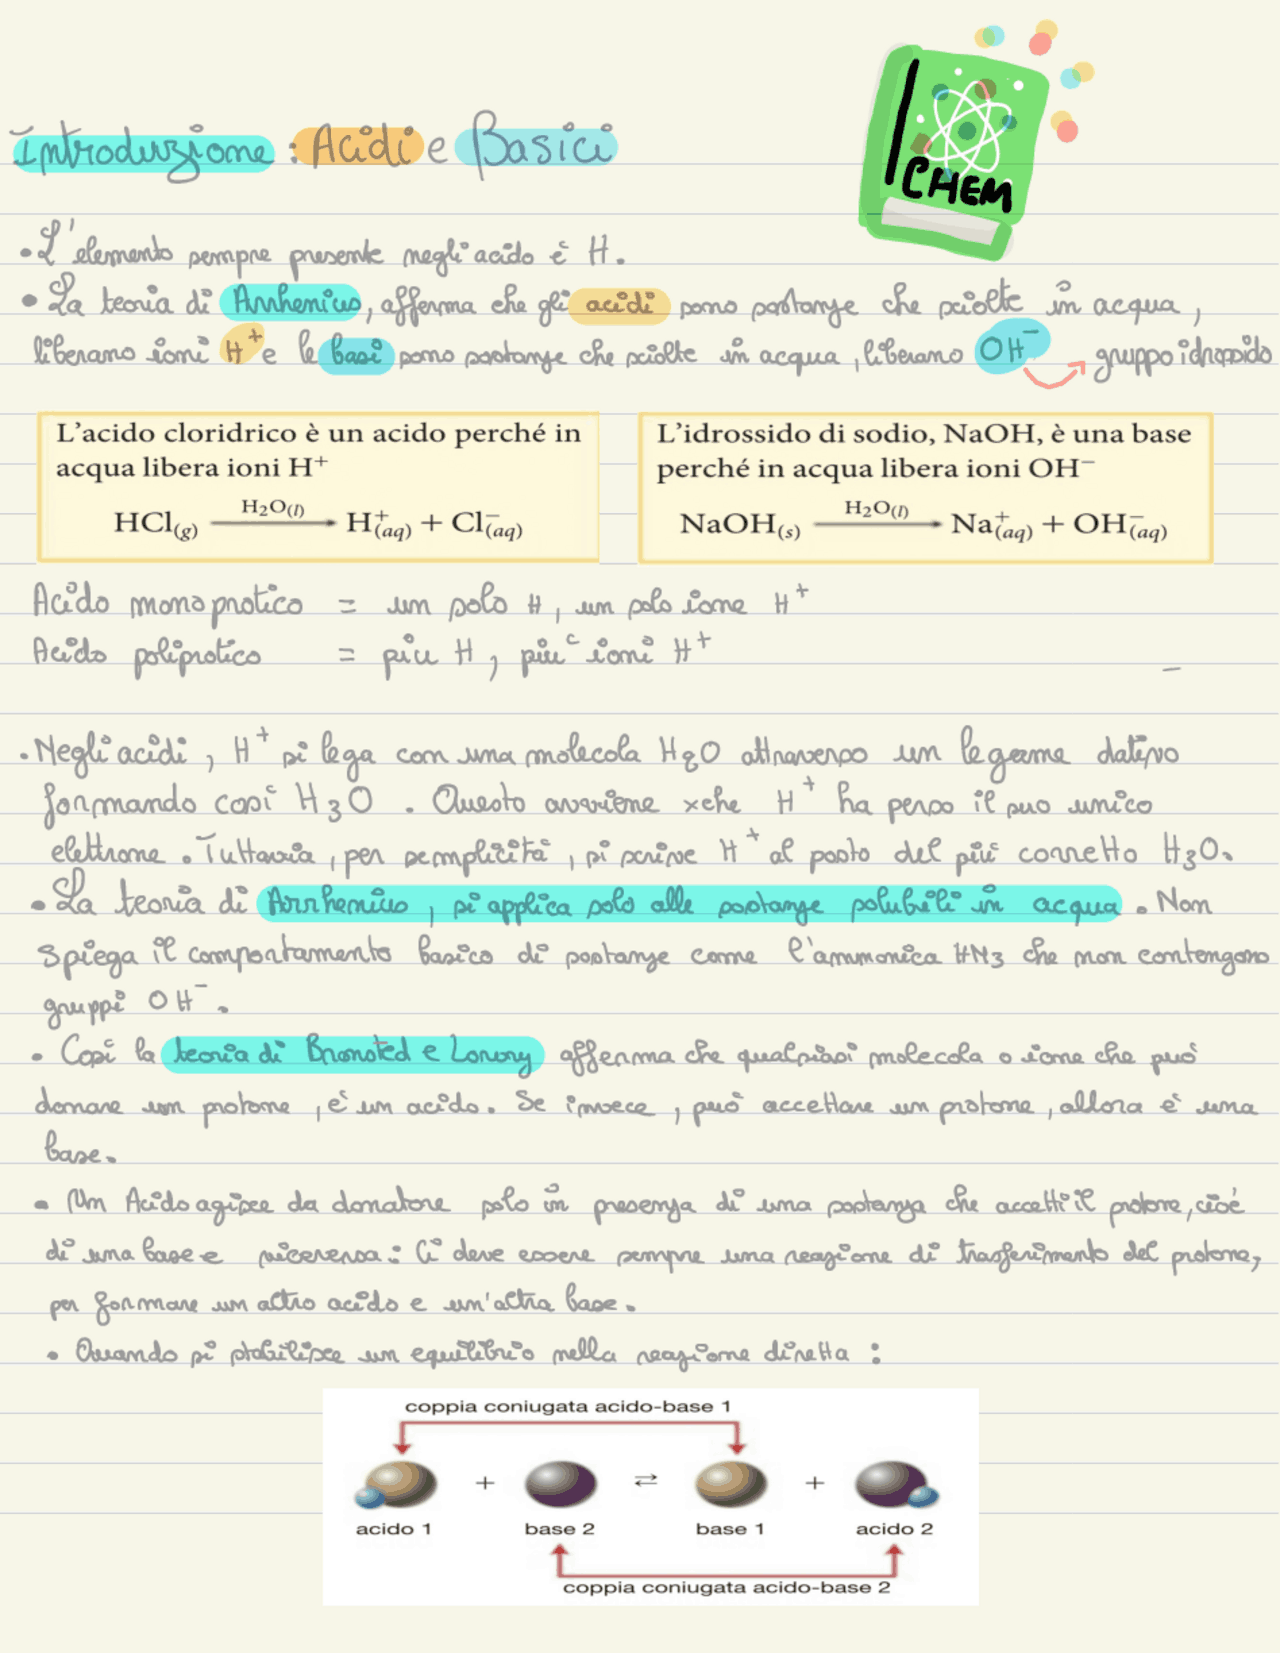 Introduzione: Acidi e Basici
CHEM
• L'elemento sempre presente negli acido è H.
• La teoria di Arrhenius, afferma che gli acidi sono sostanze che sciolte in acqua,
liberano ioni H⁺ e le basi sono sostanze che sciolte in acqua, liberano OH⁻ → gruppo idrossido
L'acido cloridrico è un acido perché in
acqua libera ioni H⁺
HCl(g) —H₂O(l)→ H⁺(aq) + Cl⁻(aq)
L'idrossido di sodio, NaOH, è una base
perché in acqua libera ioni OH⁻
NaOH(s) —H₂O(l)→ Na⁺(aq) + OH⁻(aq)
Acido monoprotico = un solo H, un solo ione H⁺
Acido poliprotico = piu H, piu ioni H⁺
• Negli acidi, H⁺ si lega con una molecola H₂O attraverso un legame dativo
formando così H₃O. Questo avviene xche H⁺ ha perso il suo unico
elettrone. Tuttavia, per semplicità, si scrive H⁺ al posto del più corretto H₃O.
• La teoria di Arrhenius, si applica solo alle sostanze solubili in acqua. Non
spiega il comportamento basico di sostanze come l'ammonica HN₃ che non contengono
gruppi OH⁻.
• Così la teoria di Bronsted e Lowry afferma che qualsiasi molecola o ione che può
donare un protone, è un acido. Se invece, può accettare un protone, allora è una
base.
• Un Acido agisce da donatore solo in presenza di una sostanza che accetti il protone, cioè
di una base e viceversa: Ci deve essere sempre una reazione di trasferimento del protone,
per formare un altro acido e un'altra base.
• Quando si stabilisce un equilibrio nella reazione diretta:
coppia coniugata acido-base 1
+ ⇄ +
acido 1 base 2 base 1 acido 2
coppia coniugata acido-base 2